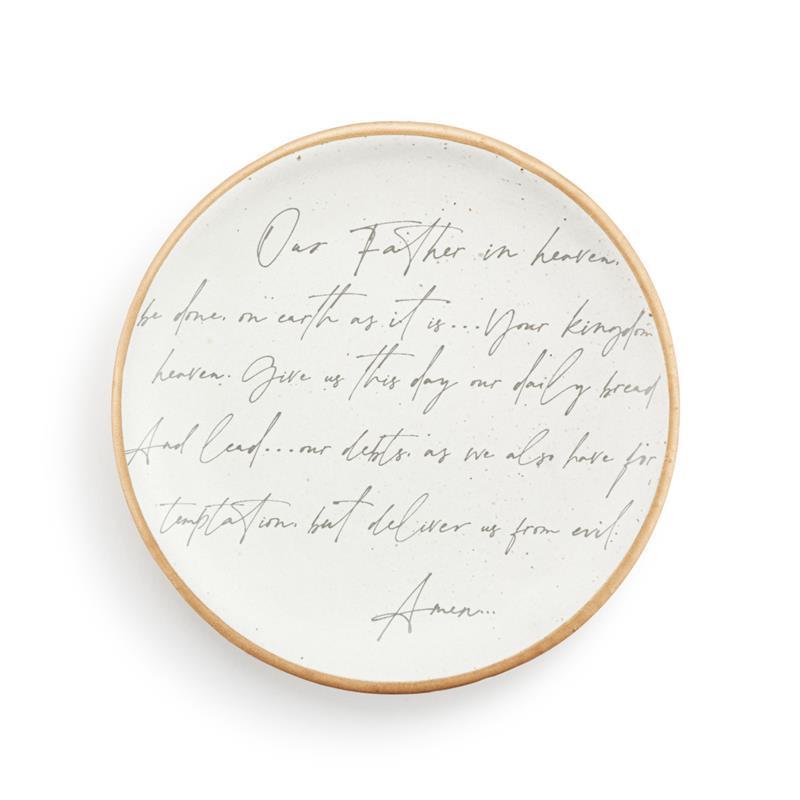 Our Father in heaven,
be done, on earth as it is...Your kingdom
heaven. Give us this day our daily bread
And lead...our debts, as we also have for
temptation, but deliver us from evil.
Amen...